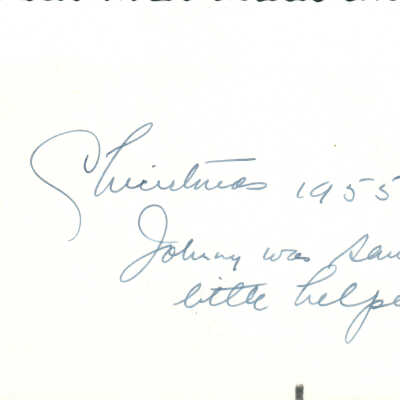 Christmas 1955
Johnny was San
little helpe